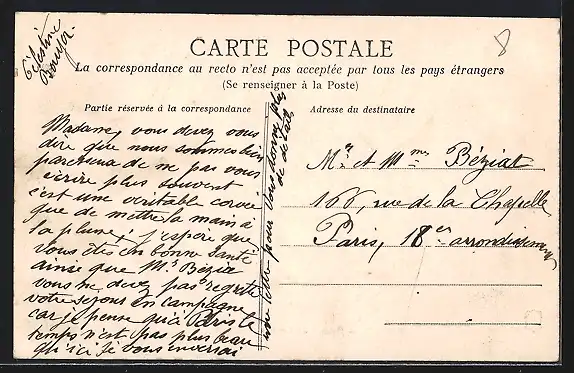 Célestine
CARTE POSTALE
La correspondance au recto n'est pas acceptée par tous les pays étrangers
(Se renseigner à la Poste)
Partie réservée à la correspondance
Adresse du destinataire
Madame, vous devez vous
dire que nous sommes bien
paresseux de ne pas vous
écrire plus souvent
c'est une véritable corvée
que de mettre la main à
la plume; j'espère que
vous êtes en bonne santé
ainsi que Mr Bézia
vous ne devez pas regretter
votre séjour en campagne
car je pense qu'à Paris le
temps n'est pas plus beau
qu'ici Je vous enverrai
une lettre pour vous donner plus
de détails
Mr et Mme Béziat
166, rue de la Chapelle
Paris, 18e arrondissement